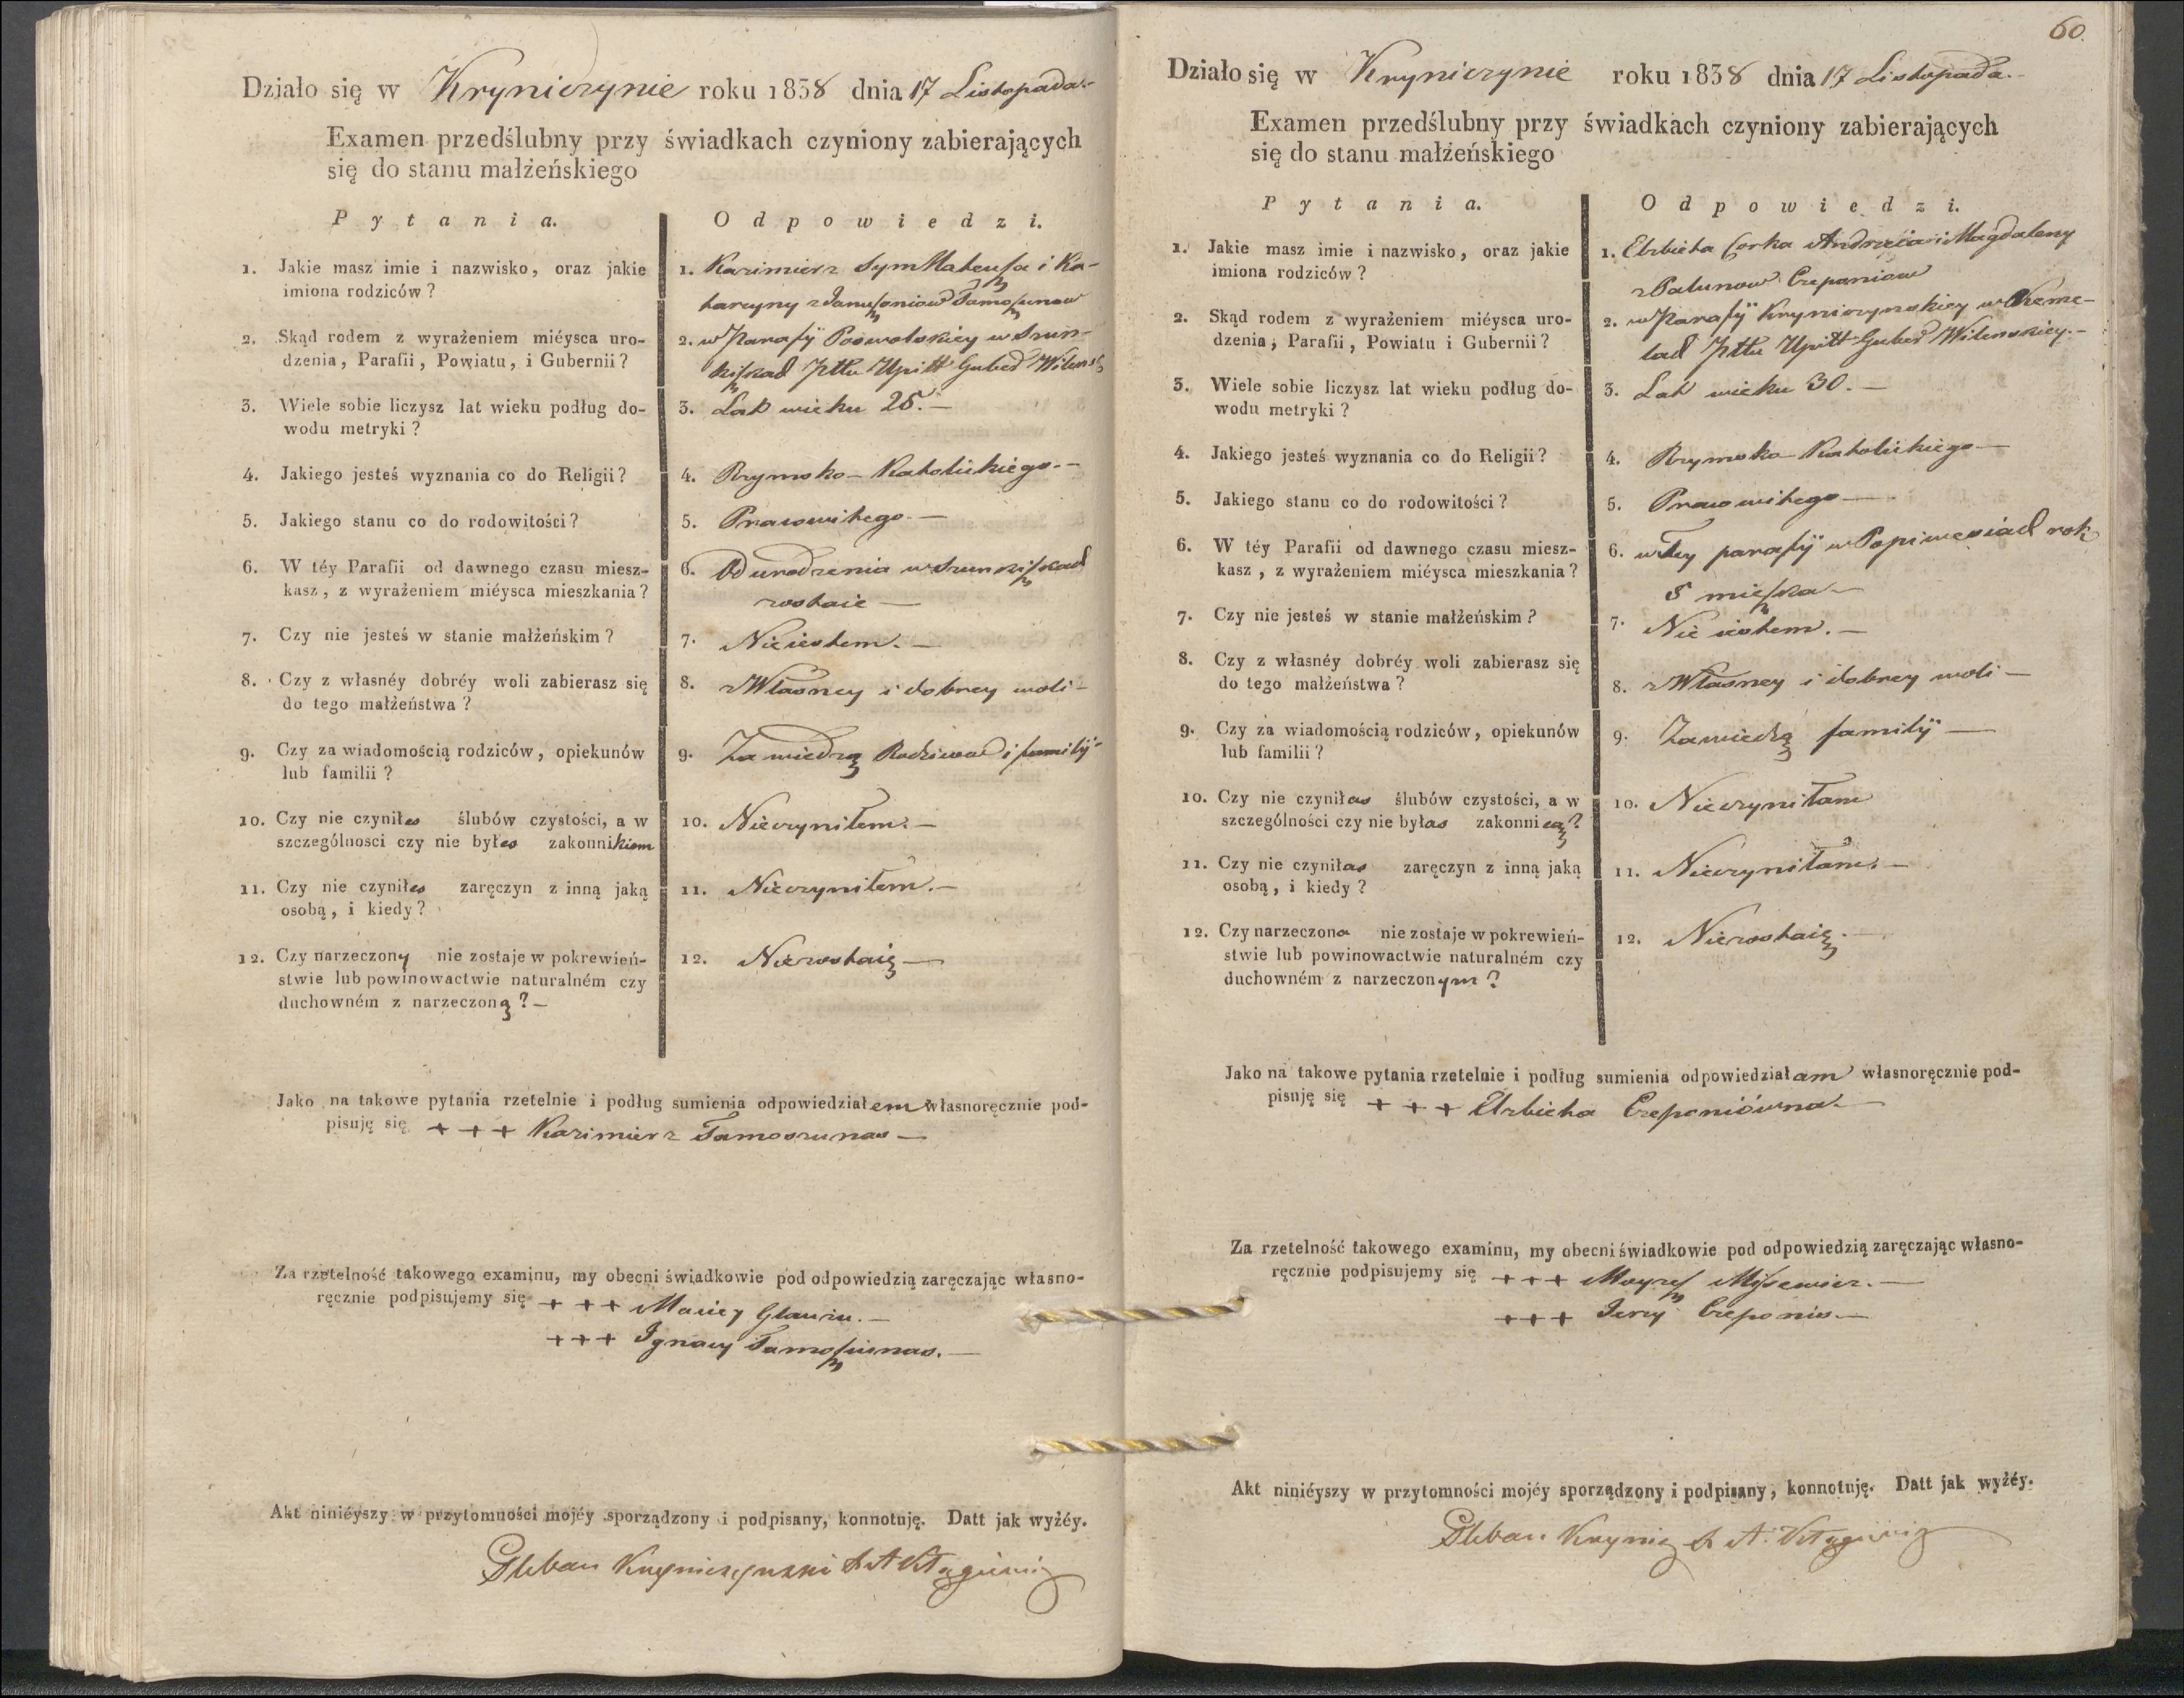 Działo się w Kryniczynie roku 1838 dnia 17 Listopada.-
Examen przedślubny przy świadkach czyniony zabierających
się do stanu małżeńskiego
Pytania. Odpowiedzi.
1. Jakie masz imie i nazwisko, oraz jakie
imiona rodziców?
1. Kazimierz Syn Mateusza i Ka-
tarzyny z Januszoniow Tamoszunow
2. Skąd rodem z wyrażeniem miéysca uro-
dzenia, Parafii, Powiatu, i Gubernii?
2. w Parafij Poswolskiey w
Pttu Upitt Guber Wileńsk
3. Wiele sobie liczysz lat wieku podług do-
wodu metryki?
3. Lat wieku 25.—
4. Jakiego jesteś wyznania co do Religii?
4. Rzymsko-Katolickiego.-
5. Jakiego stanu co do rodowitości?
5. Prawowitego.—
6. W téy Parafii od dawnego czasu miesz-
kasz, z wyrażeniem miéysca mieszkania?
6. Od urodzenia w
zostaie—
7. Czy nie jesteś w stanie małżeńskim?
7. Nie iestem.—
8. Czy z własnéy dobréy woli zabierasz się
do tego małżeństwa?
8. z Własney i dobrey woli-
9. Czy za wiadomością rodziców, opiekunów
lub familii?
9. Za wiedzą Rodzicow i familij-
10. Czy nie czyniłes ślubów czystości, a w
szczególnosci czy nie byłes zakonnikiem
10. Nieczyniłem.—
11. Czy nie czyniłes zaręczyn z inną jaką
osobą, i kiedy?
11. Nieczyniłem.—
12. Czy narzeczony nie zostaje w pokrewień-
stwie lub powinowactwie naturalném czy
duchowném z narzeczoną?—
12. Niezostaię—
Jako na takowe pytania rzetelnie i podług sumienia odpowiedziałem własnoręcznie pod-
pisuję się + + + Kazimierz Tamoszunas—
Za rzetelność takowego examinu, my obecni świadkowie pod odpowiedzią zaręczając własno-
ręcznie podpisujemy się + + + Maciey
+ + + Ignacy Tamoszunas.—
Akt niniéyszy w przytomności mojéy sporządzony i podpisany, konnotuję. Datt jak wyźéy.
Pleban Kryniczynski
60.
Działo się w Kryniczynie roku 1838 dnia 17 Listopada.-
Examen przedślubny przy świadkach czyniony zabierających
się do stanu małżeńskiego
Pytania. Odpowiedzi.
1. Jakie masz imie i nazwisko, oraz jakie
imiona rodziców?
1. Elzbieta Corka Andrzeia i Magdaleny
z Czeponiow
2. Skąd rodem z wyrażeniem miéysca uro-
dzenia, Parafii, Powiatu i Gubernii?
2. w Parafij Kryniczynskiey w
Pttu Upitt Guber Wilenskiey.-
3. Wiele sobie liczysz lat wieku podług do-
wodu metryki?
3. Lat wieku 30.—
4. Jakiego jesteś wyznania co do Religii?
4. Rzymsko-Katolickiego—
5. Jakiego stanu co do rodowitości?
5. Prawowitego—
6. W téy Parafii od dawnego czasu miesz-
kasz, z wyrażeniem miéysca mieszkania?
6. w tey parafij w rok
mieszka—
7. Czy nie jesteś w stanie małżeńskim?
7. Nie iestem.—
8. Czy z własnéy dobréy woli zabierasz się
do tego małżeństwa?
8. z Własney i dobrey woli—
9. Czy za wiadomością rodziców, opiekunów
lub familii?
9. Za wiedzą familij—
10. Czy nie czyniłas ślubów czystości, a w
szczególności czy nie byłas zakonnicą?
10. Nieczyniłam
11. Czy nie czyniłas zaręczyn z inną jaką
osobą, i kiedy?
11. Nieczyniłam.—
12. Czy narzeczona nie zostaje w pokrewień-
stwie lub powinowactwie naturalném czy
duchowném z narzeczonym?
12. Niezostaię.—
Jako na takowe pytania rzetelnie i podług sumienia odpowiedziałam własnoręcznie pod-
pisuję się + + + Elzbieta Czeponiówna.—
Za rzetelność takowego examinu, my obecni świadkowie pod odpowiedzią zaręczając własno-
ręcznie podpisujemy się + + + Moyzesz
+ + + Jerzy Czeponis.—
Akt niniéyszy w przytomności mojéy sporządzony i podpisany, konnotuję. Datt jak wyźéy.
Pleban